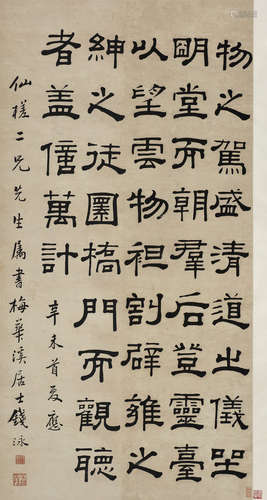 物之駕盛清道之儀坐
明堂而朝羣后登靈臺
以望雲物袒割辟雍之
紳之徒圜橋門而觀聽
者蓋億萬計
辛未首夏應
仙槎二兄先生屬書梅華溪居士錢泳